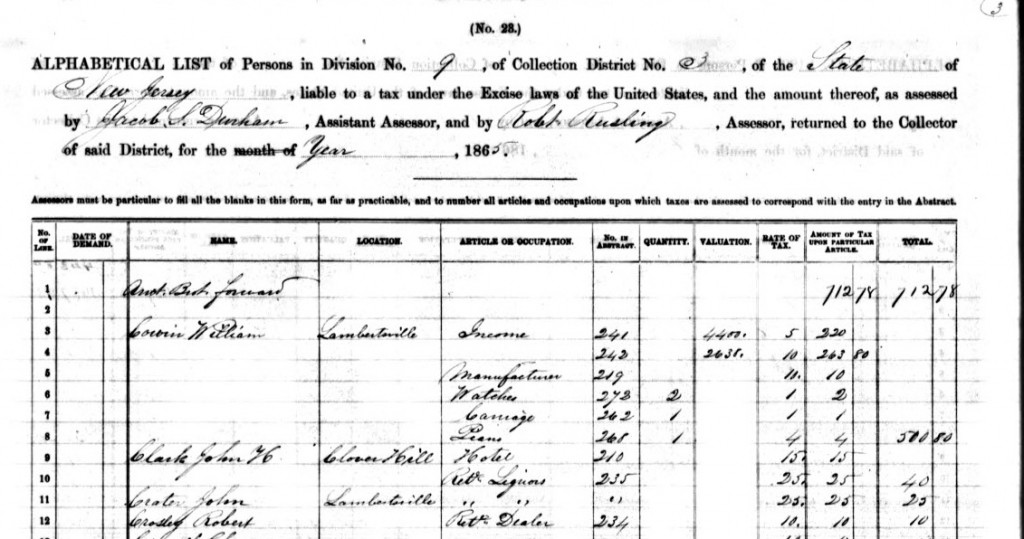 3
(No. 23.)
ALPHABETICAL LIST of Persons in Division No. 9, of Collection District No. 3, of the State of
New Jersey, liable to a tax under the Excise laws of the United States, and the amount thereof, as assessed
by Jacob S. Durham, Assistant Assessor, and by Robt Rusling, Assessor, returned to the Collector
of said District, for the month of Year, 1865.
Assessors must be particular to fill all the blanks in this form, as far as practicable, and to number all articles and occupations upon which taxes are assessed to correspond with the entry in the Abstract.
No. of Line. DATE OF DEMAND. NAME. LOCATION. ARTICLE OR OCCUPATION. No. in Abstract. QUANTITY. VALUATION. RATE OF TAX. AMOUNT OF TAX UPON PARTICULAR ARTICLE. TOTAL.
1 Amt. Brt forward 712 78 712 78
2
3 Cowin William Lambertsville Income 241 4400. 5 220
4 242 2638. 10 263 80
5 Manufacturer 219 10. 10
6 Watches 272 2 1 2
7 Carriage 262 1 1 1
8 Piano 268 1 4 4 500 80
9 Clark John H Clover Hill Hotel 210 15. 15
10 Retl. Liquors 235 25. 25 40
11 Crater John Lambertsville " " " 25. 25 25
12 Crosley Robert Retl. Dealer 234 10. 10 10